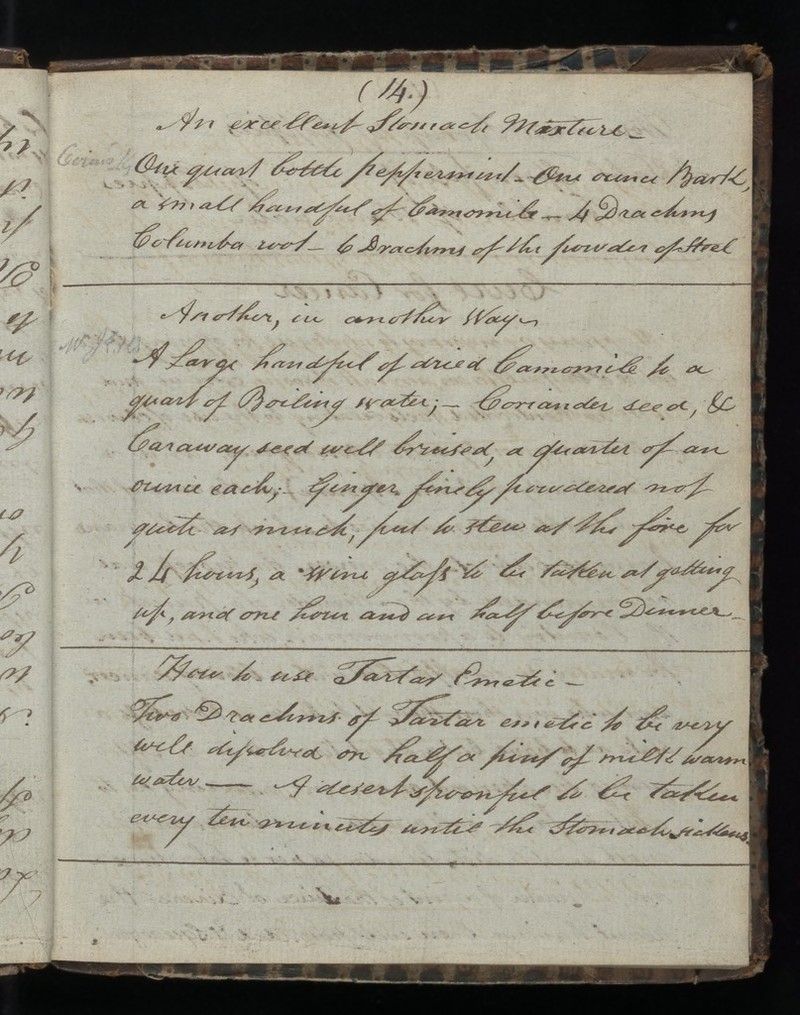 (14.)
An excellent Stomach Mixture -
One quart bottle peppermint - One ounce Bark,
a small handful of Camomile - 4 Drachms
Columba root - 6 Drachms of the powder of Steel
Another, in another Way -
A Large handful of dried Camomile to a
quart of Boiling water; - Coriander seed, &
Caraway seed well bruised, a quarter of an
ounce each; - Ginger finely powdered not
quite as much, put to stew at the fire for
24 hours, a wine glass to be taken at getting
up, and one hour and an half before Dinner -
How to use Tartar Emetic -
Two Drachms of Tartar emetic to be very
well dissolved on half a pint of milk warm
water — A desert spoonful to be taken
every ten minutes until the Stomach sickens.